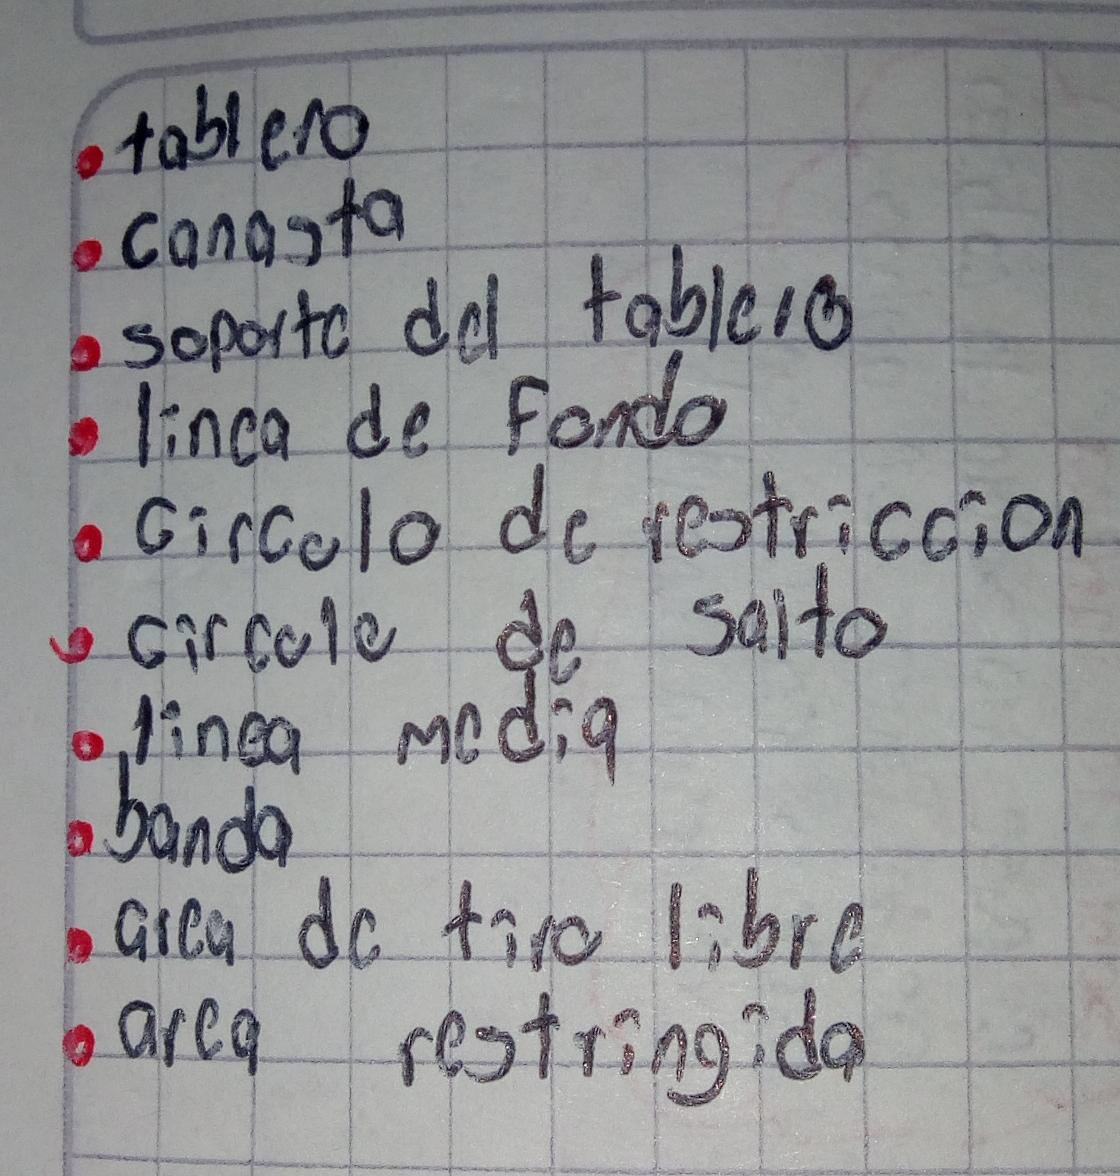 tablero
canasta
soporte del tablero
linea de Fondo
Circolo de restriccion
circolo de salto
linea media
banda
area de tiro libre
area restringida